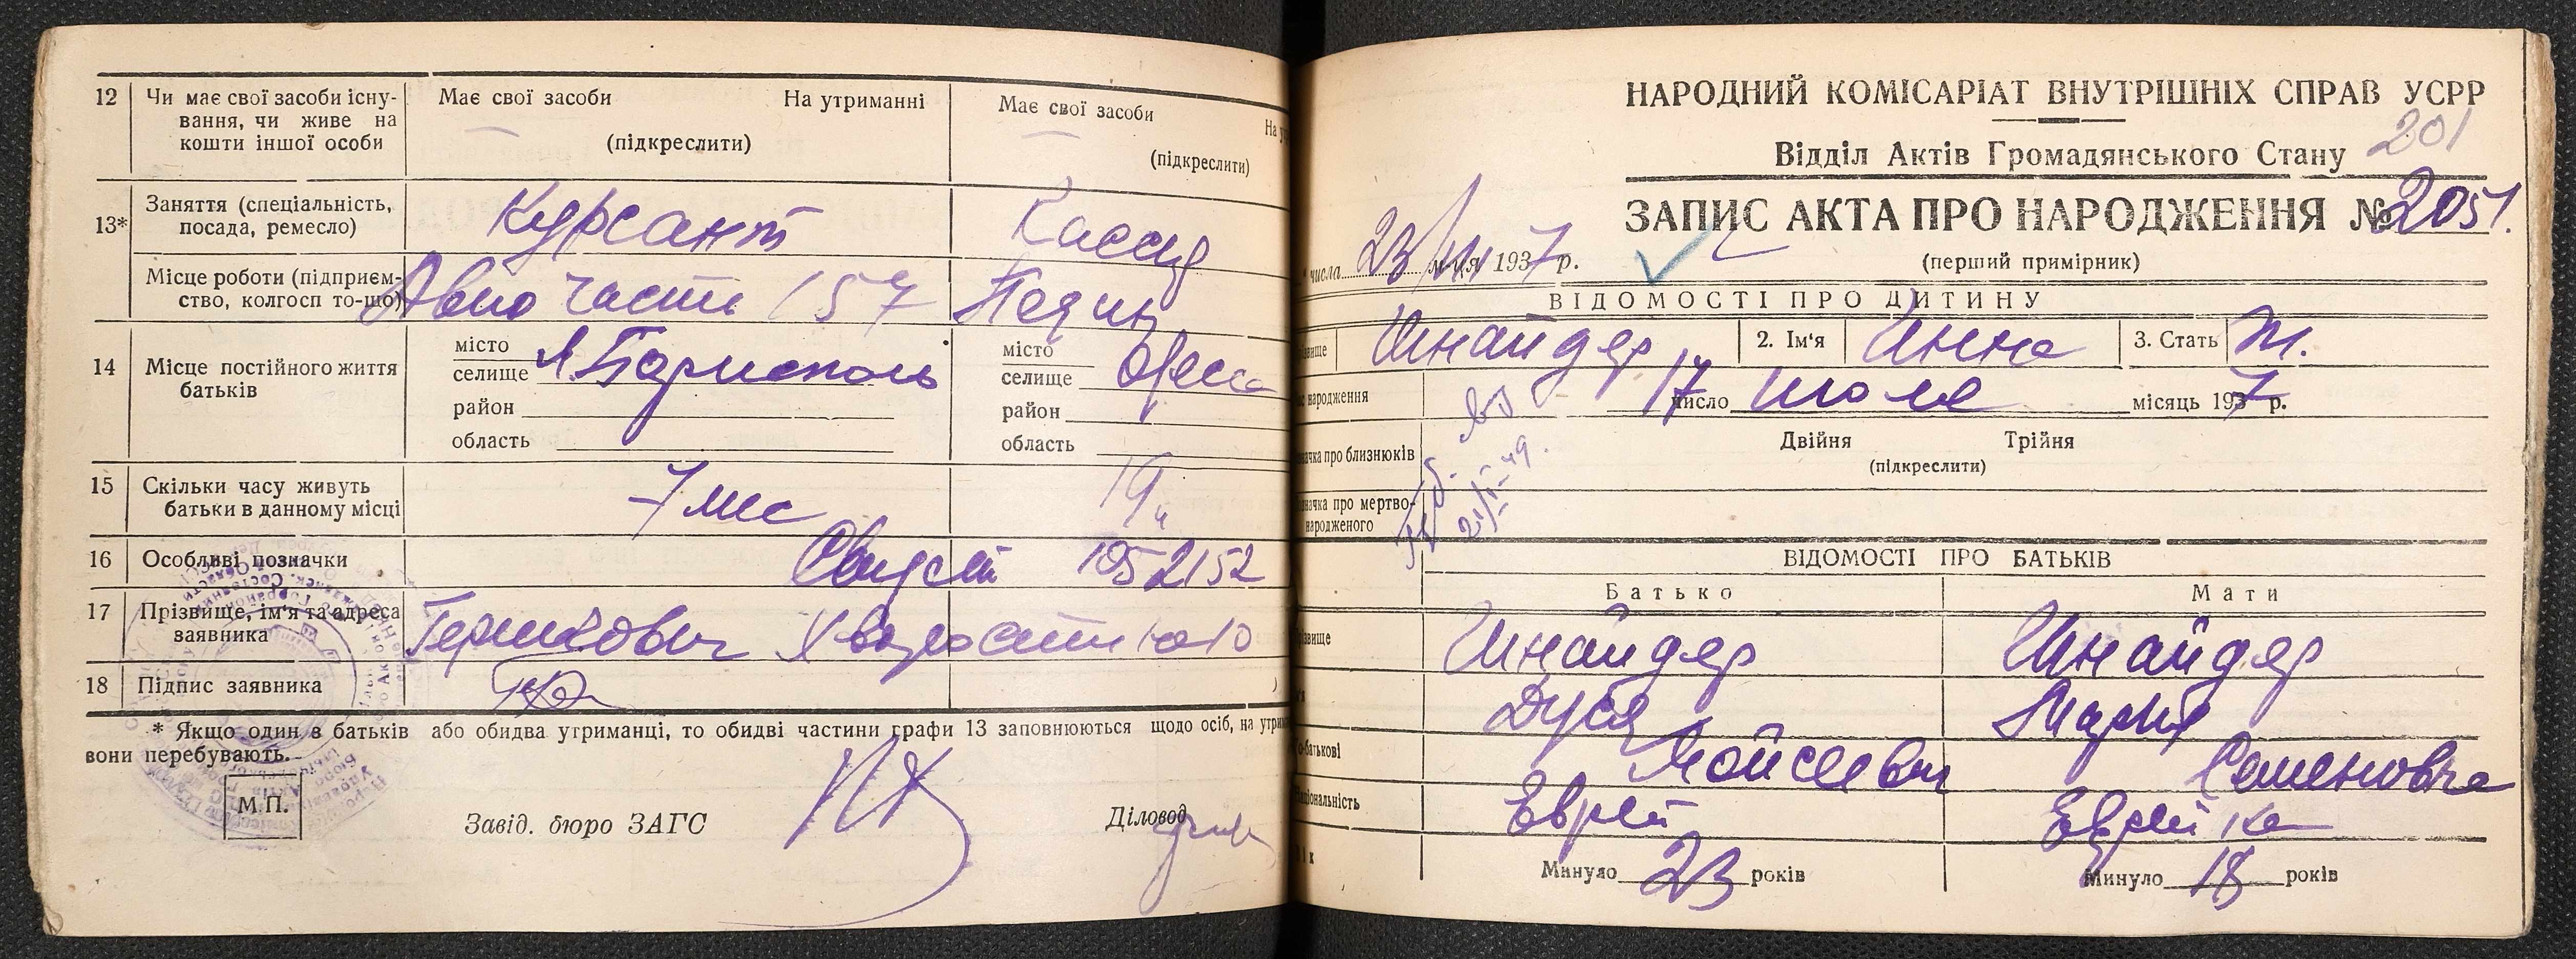 12 Чи має свої засоби існу-
вання, чи живе на
кошти іншої особи
Має свої засоби На утриманні
(підкреслити)
Має свої засоби
(підкреслити)
13* Заняття (спеціальність,
посада, ремесло)
Курсант
Місце роботи (підприєм-
ство, колгосп то-що)
Авио части 157
14 Місце постійного життя
батьків
місто
селище Борисполь
район
область
місто
селище Одесса
район
область
15 Скільки часу живуть
батьки в данному місці
7 мес
16 Особливі позначки
17 Прізвище, ім'я та адреса
заявника
18 Підпис заявника
* Якщо один з батьків або обидва утриманці, то обидві частини графи 13 заповнюються щодо осіб, на
вони перебувають.
М.П.
Завід. бюро ЗАГС Діловод
НАРОДНИЙ КОМІСАРІАТ ВНУТРІШНІХ СПРАВ УСРР
201
Відділ Актів Громадянського Стану
ЗАПИС АКТА ПРО НАРОДЖЕННЯ № 2051.
числа 23/ м-ця 1937 р.
(перший примірник)
ВІДОМОСТІ ПРО ДИТИНУ
Шнайдер 2. Ім'я Инна 3. Стать Ж.
народження 17 число июля місяць 1937 р.
про близнюків Двійня Трійня
(підкреслити)
про мертво-
народженого
21/I-49.
ВІДОМОСТІ ПРО БАТЬКІВ
Батько Мати
Шнайдер Шнайдер
Дуся Мария
Мойсеевич Семеновна
Еврей Еврейка
Минуло 23 років Минуло 18 років